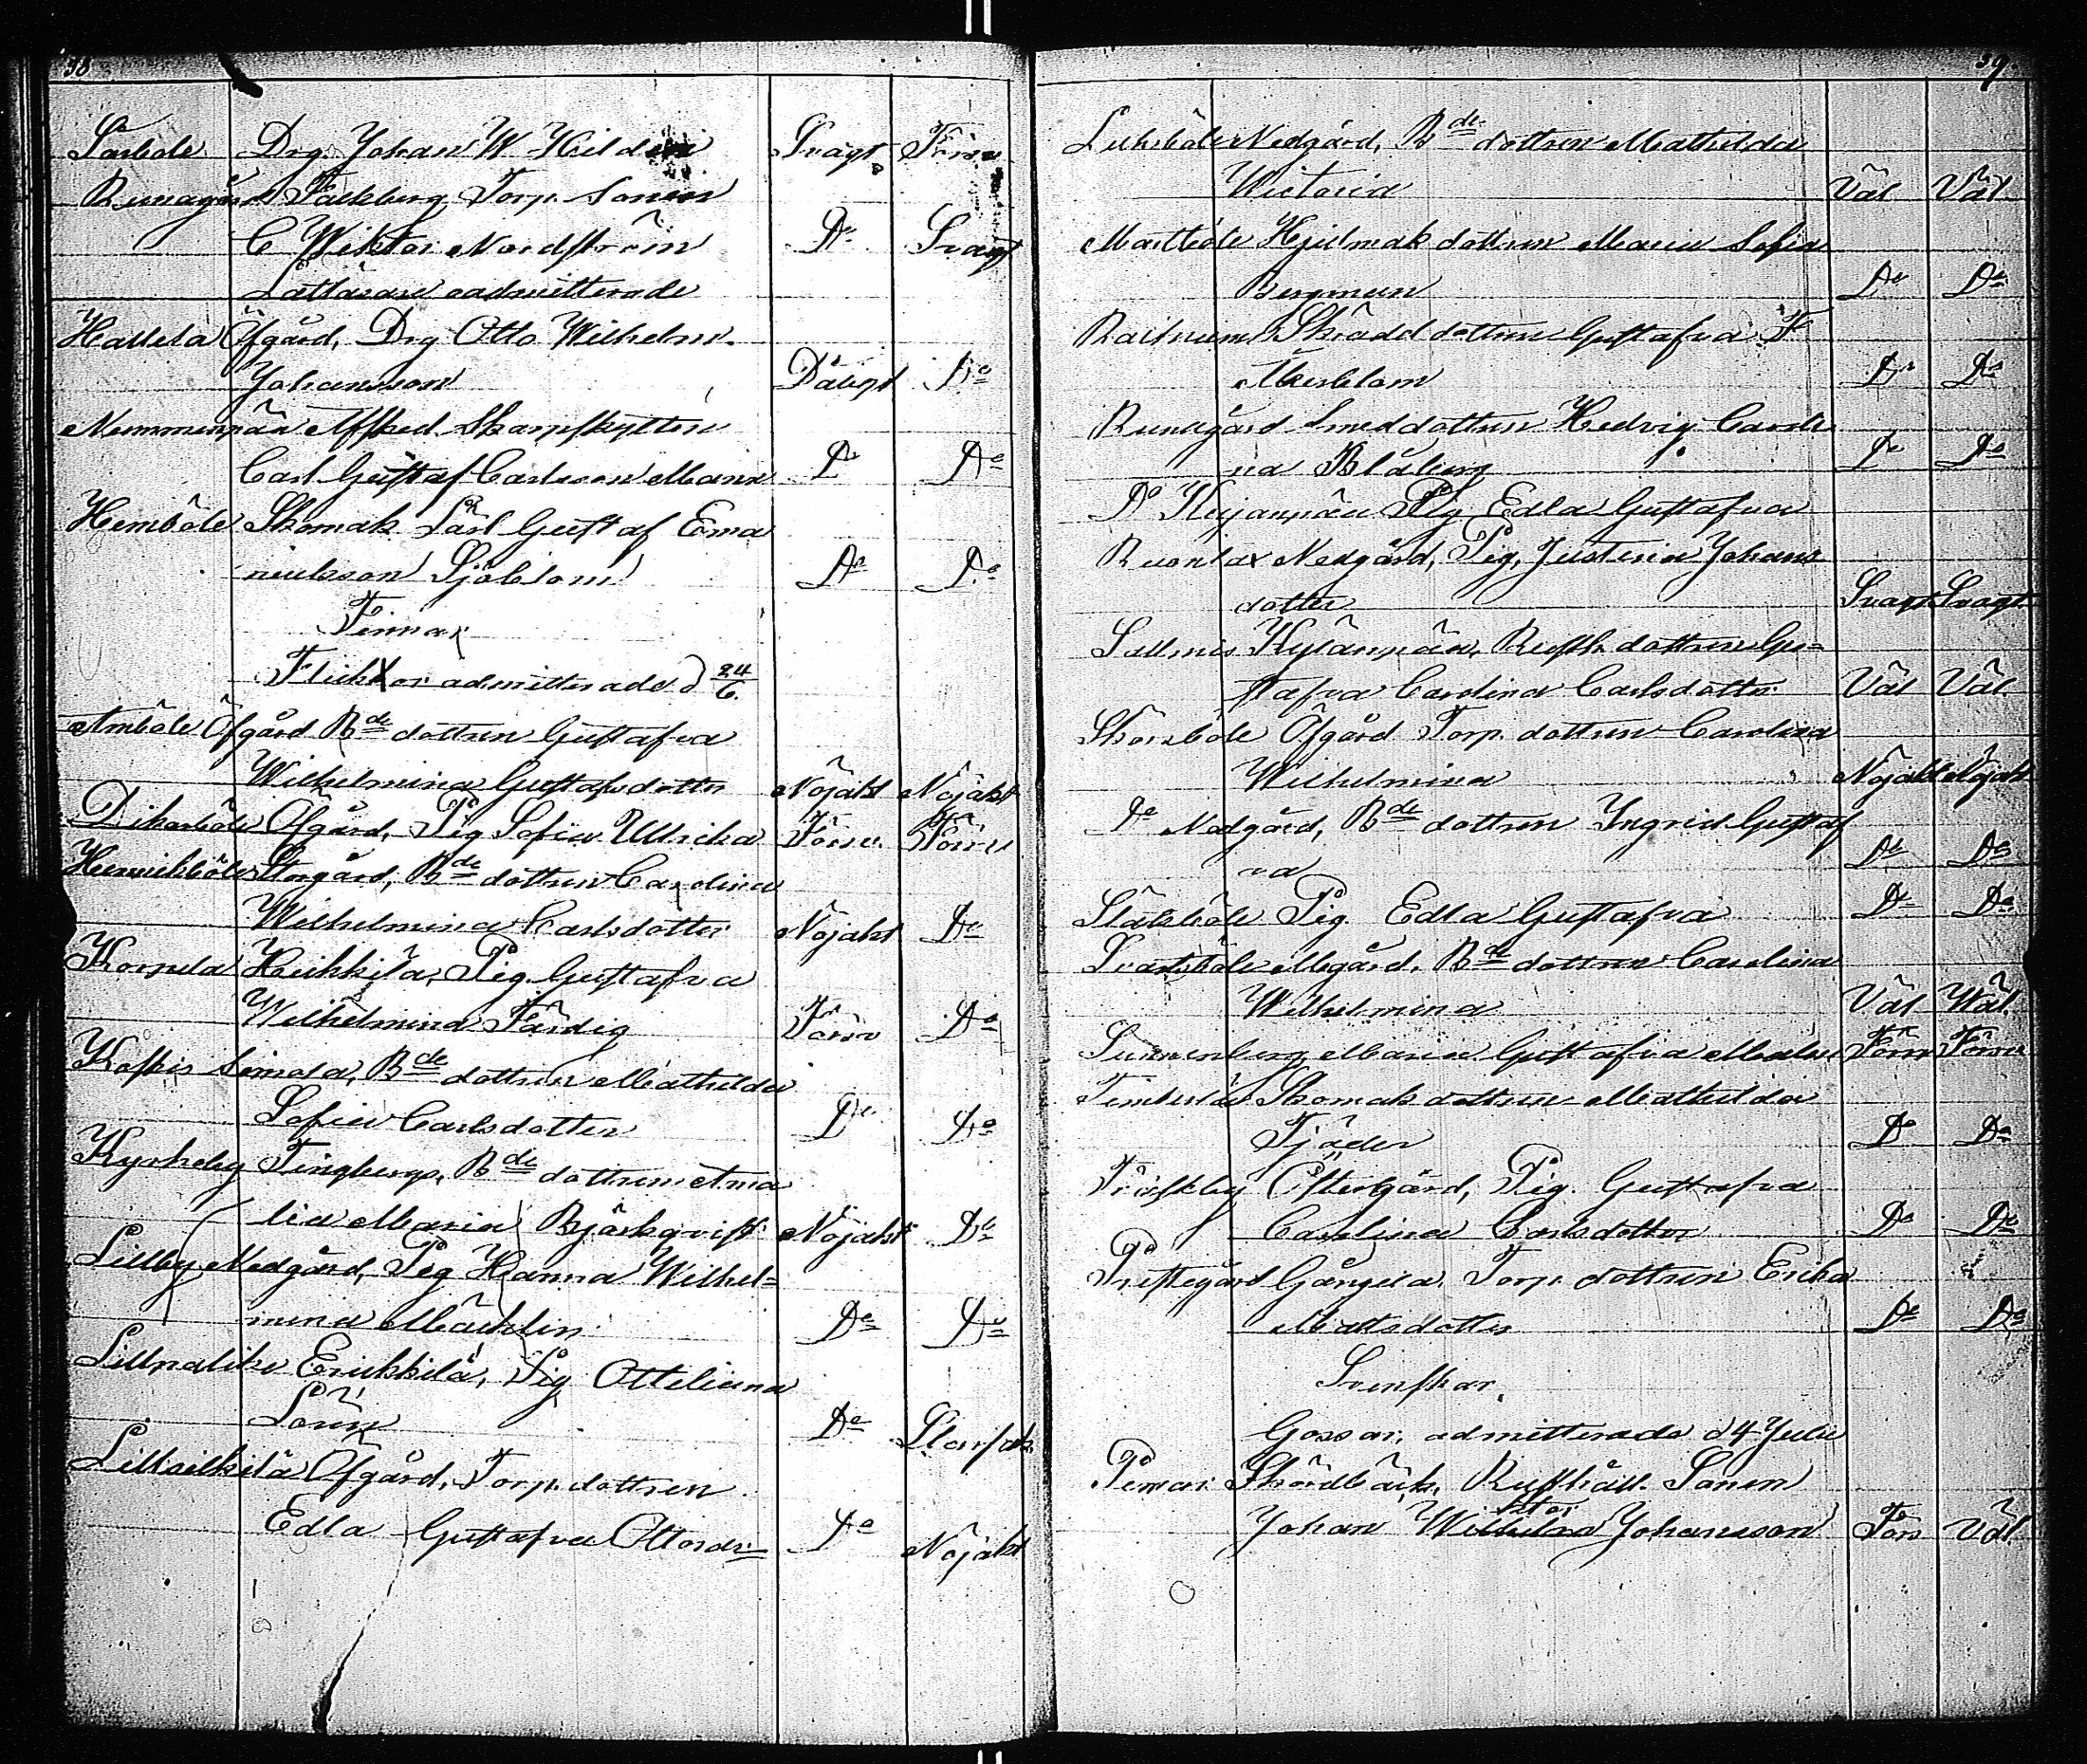 38
Særbole Drg. Johan W Hildén Svagt Förs.
Runagård Falkberg Torp. Sonen
C Wiktor Nordström Do Svagt
Lättläsare admitterade
Hallela Öfgård, Drg Otto Wilhelm
Johansson Dåligt Do
Nummenpää Afsked. Skarpskytten
Carl Gustaf Carlsson Mann Do Do
Hemböle Skomak. Lärl Gustaf Ema
nuelsson Sjöblom Do Do
Finnar
Flickor admitterade d 24/6.
Amböle Öfgård Bde dottren Gustafva
Wilhelmina Gustafsdotter Nöjakt Nöjakt
Dikarböle Öfgård, Pig Sofia Ullrika Försv. Försv
Henrikböle Storgård, Bde dottren Carolina
Wilhelmina Carlsdotter Nöjakt Do
Korsula Heikkilä, Pig. Gustafva
Wilhelmina Färdig Försv Do
Koskis Simola, Bde dottren Mathilda
Sofia Carlsdotter Do Do
Kyrkoby Tingberga, Bde dottren Ama
lia Maria Björkqvist Nöjakt Do
Lillby Nedgård, Pig Hanna Wilhel=
mina Mäcklin Do Do
Lillpalike Erickkilä, Pig Otteliana
Lorin Do
Lilloilkilä Öfgård, Torp. dottren
Edla Gustafva Ottosdr Do Nöjakt
39.
Luksböle Nedgård, Bde dottren Mathilda
Wictoria Väl Väl
Martböle Hjulmak dottren Maria Sofia
Bergman Do Do
Raitniemi Skrädd dottren Gustafva F
Åkerblom Do Do
Runagård Smeddottren Hedvig Caroli
na Blåberg Do Do
Do Kujanpää Pig Edla Gustafva
Ruonlax Nedgård, Pig, Justina Johans
dotter Svagt Svagt
Sallmis Kylänpää, Rusth. dottren Gus=
tafva Carolina Carlsdotter Väl Väl
Skörsböle Öfgård Torp. dottren Carolina
Wilhelmina Nöjakt Nöjakt
Do Nedgård, Bde dottren Ingrid Gustaf
va Do Do
Stålsböle Pig. Edla Gustafva Do Do
Svartböle Megård, Bde dottren Carolina
Wilhelmina Väl Wäl.
Sunnenberg Maria Gustafva Malm Försv Försv
Timberlä Skomak dottren Mathilda
Tjäder Do Do
Träskby Östergård, Pig. Gustafva
Carolina Carlsdotter Do Do
Prestegård Gångila, Torp. dottren Erika
Mattsdotter Do Do
Svenskar.
Gossar, admitterade d 4 Julii
Pemar Skördbäck, Rusthåll. Sonen
Johan Wiktor Johansson Förs Väl